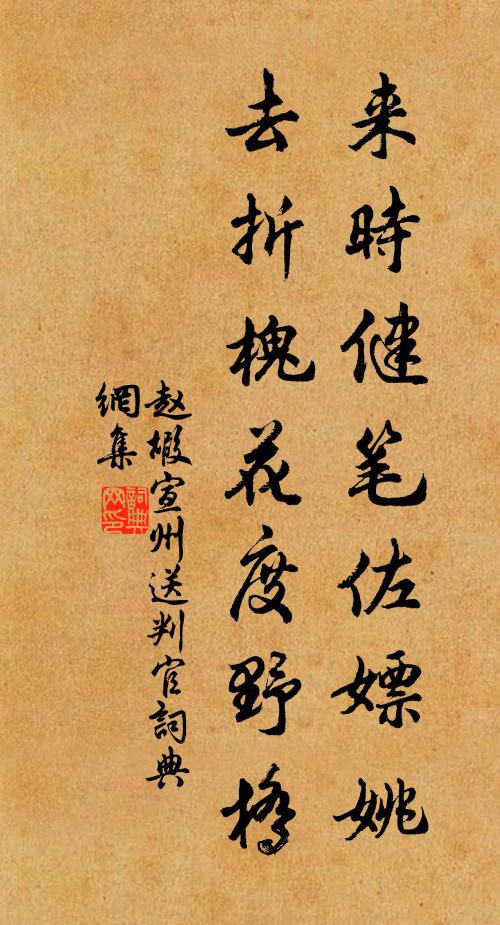 来時健笔佐嫖姚
去折槐花度野橋
赵嘏宣州送判官詞典
網集
詞典網印